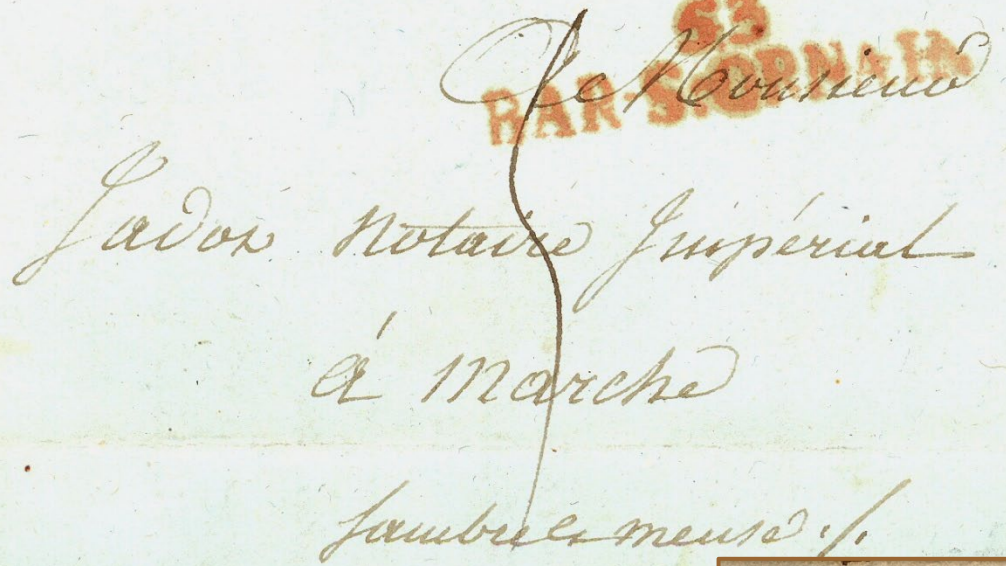 53
BAR-S-ORNAIN
A Monsieur
Jadot Notaire Impérial
à Marche
Sambre & meuse ./.